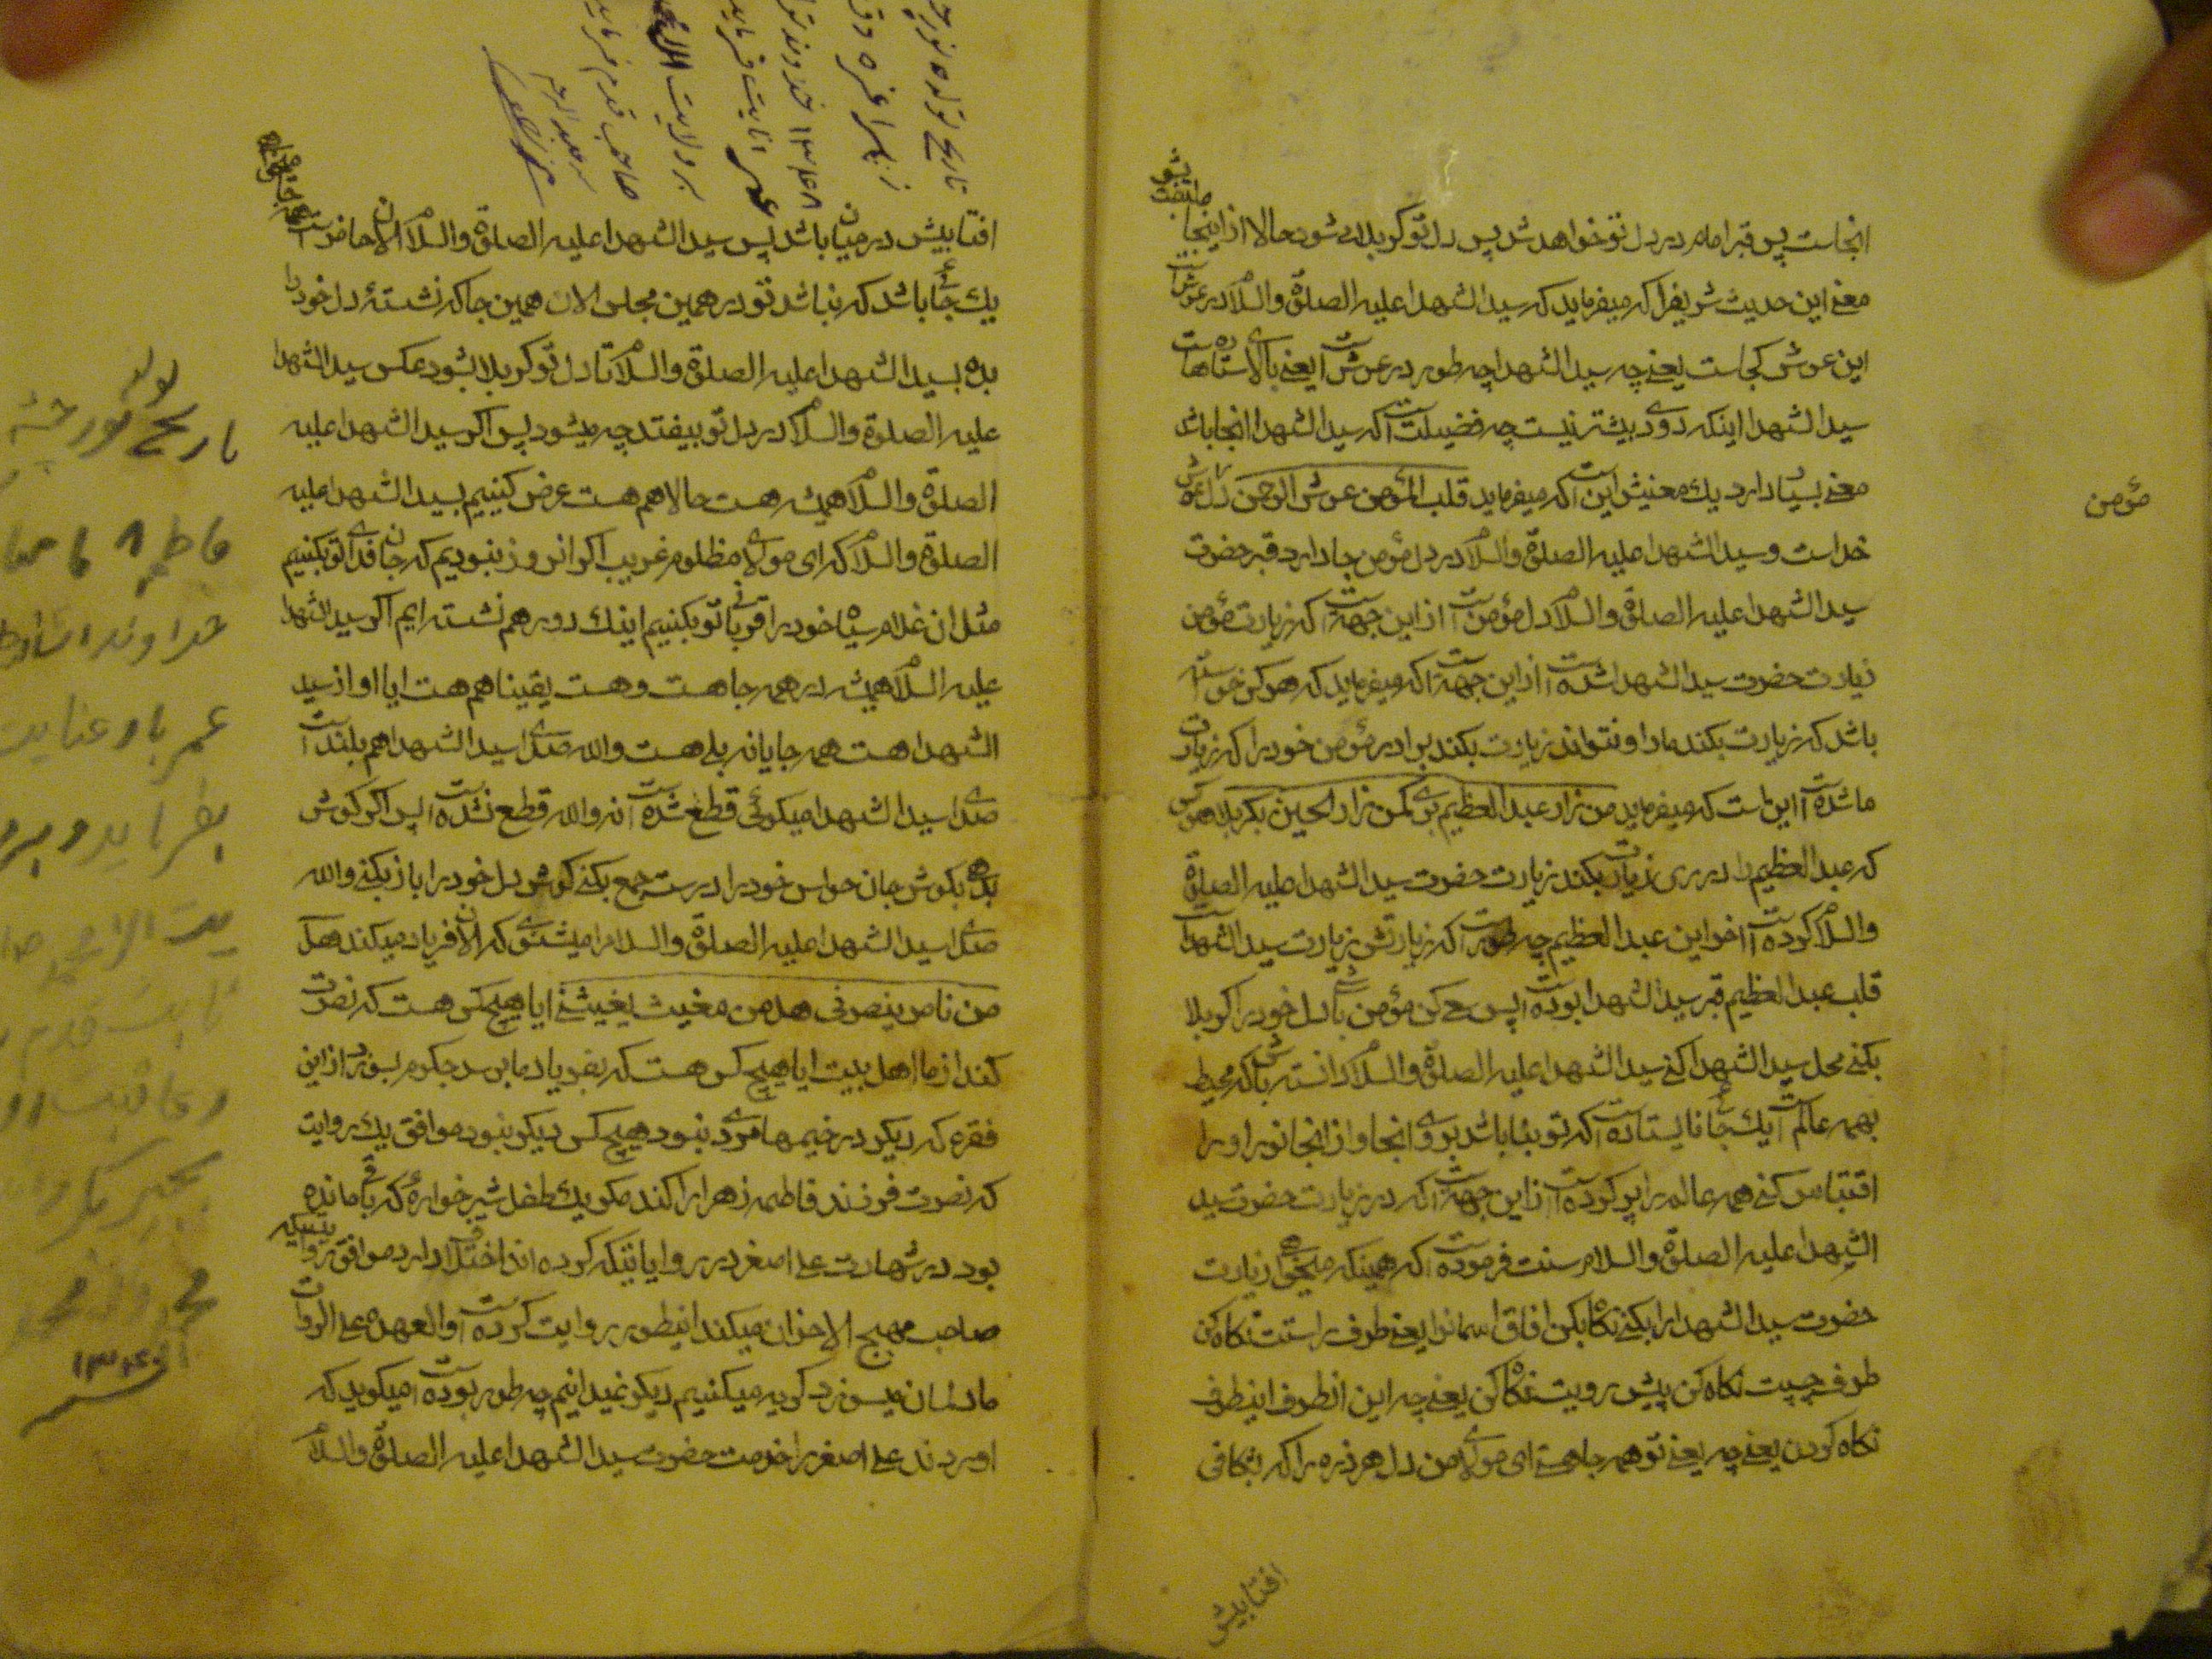 انجاست پس قبر امام در دل تو خواهد شد پس دل تو کربلا میشود حالا از اینجا ملتفت شو
معنی این حدیث شریف را که میفرماید که سید الشهدا علیه الصلوة والسلام در عرش است
این عرش کجاست یعنی چه سید الشهدا چه طور در عرش است یعنی بالا استاده است
سید الشهدا اینکه دودی بیشتر نیست چه فضیلت است که سید الشهدا انجا باشد
معنی بسیار دارد یک معنیش این است که میفرماید قلب المؤمن عرش الرحمن دل مؤمن عرش
خداست و سید الشهدا علیه الصلوة والسلام در دل مؤمن جا دارد قبر حضرت
سید الشهدا علیه الصلوة والسلام دل مؤمن است از این جهت است که زیارت مؤمن
زیارت حضرت سید الشهدا شده است از این جهت است که میفرماید که هر کس خواسته
باشد که زیارت بکند ما را و نتواند زیارت بکند برادر مؤمن خود را که زیارت
ما شده است این است که میفرماید من زار عبد العظیم بری کمن زار الحسین بکربلا هر کس
که عبد العظیم را در ری زیارت بکند زیارت حضرت سید الشهدا علیه الصلوة
والسلام کرده است اخر این عبد العظیم چه طور است که زیارتش زیارت سید الشهدا است
قلب عبد العظیم قبر سید الشهدا بوده است پس سعی کن مؤمن باشی دل خود را کربلا
بکنی محل سید الشهدا کنی سید الشهدا علیه الصلوة والسلام دانسته باش که محیط
بهمه عالم است یک جائی نایستاده است که تو بنا باشد بروی انجا و از انجا نور او را
اقتباس کنی همه عالم را پر کرده است از این جهت است که در زیارت حضرت سید
الشهدا علیه الصلوة والسلام سنت فرموده است که همینکه میخواهی زیارت
حضرت سید الشهدا را بکنی نگاه بکن افاق اسمانرا یعنی طرف راستت نگاه کن
طرف چپت نگاه کن پیش رویت نگاه کن یعنی چه این انطرف اینطرف
نگاه کردن یعنی چه یعنی تو همه جا هستی ای مولای من دل هر ذره را که بشکافی
افتابیش
مؤمن
افتابیش در میان باشد پس سید الشهدا علیه الصلوة والسلام الان حاضر است
یک جائی باشد که نباشد تو در همین مجلس الان همین جا که نشستهٔ دل خود را
بده بسید الشهدا علیه الصلوة والسلام تا دل تو کربلا بشود عکس سید الشهدا
علیه الصلوة والسلام در دل تو بیفتد چه میشود پس اگر سید الشهدا علیه
الصلوة والسلام همیشه هست حالا هم هست عرض کنیم بسید الشهدا علیه
الصلوة والسلام که ای مولای مظلوم غریب اگر انروز نبودیم که جان فدای تو بکنیم
مثل ان غلام سیاه خود را قربانی تو بکنیم اینک دور هم نشسته ایم اگر سید الشهدا
علیه السلام همیشه در همه جا هست و هست یقینا هم هست ایا اواز سید
الشهدا هست همه جا یا نه بلی هست والله صدای سید الشهدا هم بلند است
صدای سید الشهدا میگوئی قطع شده است نه والله قطع نشده است پس اگر گوش
بدهی بگوش جان حواس خود را درست جمع بکنی گوش دل خود را باز بکنی والله
صدای سید الشهدا علیه الصلوة والسلام را میشنوی که الان فریاد میکند هل
من ناصر ینصرنی هل من مغیث یغیثنی ایا هیچکس هست که نصرت
کند از ما اهل بیت ایا هیچ کس هست که بفریاد ما برسد جگرم بسوزد از این
فقره که دیگر در خیمها مردی نبود هیچ کس دیگر نبود موافق یک روایت
که نصرت فرزند فاطمه زهرا را کند مگر یک طفل شیر خوارهٔ که باقی مانده
بود در شهادت علی اصغر در روایاتیکه کرده اند اختلاف دارد موافق روایتیکه
صاحب مهیج الاحزان میکند اینطور روایت کرده است والعهده علی الراوی
ما دلمان میسوزد گریه میکنیم دیگر نمیدانیم چه طور بوده است میگوید که
اوردند علی اصغر را خدمت حضرت سید الشهدا علیه الصلوة والسلام
تاریخ تولد نور
۱۳۵۸ خداوند
تولد
تاریخ نور چشم
خداوند انشاء
عمر با و عنایت
بفرماید و
ثابت قدم
۱۳۴۶